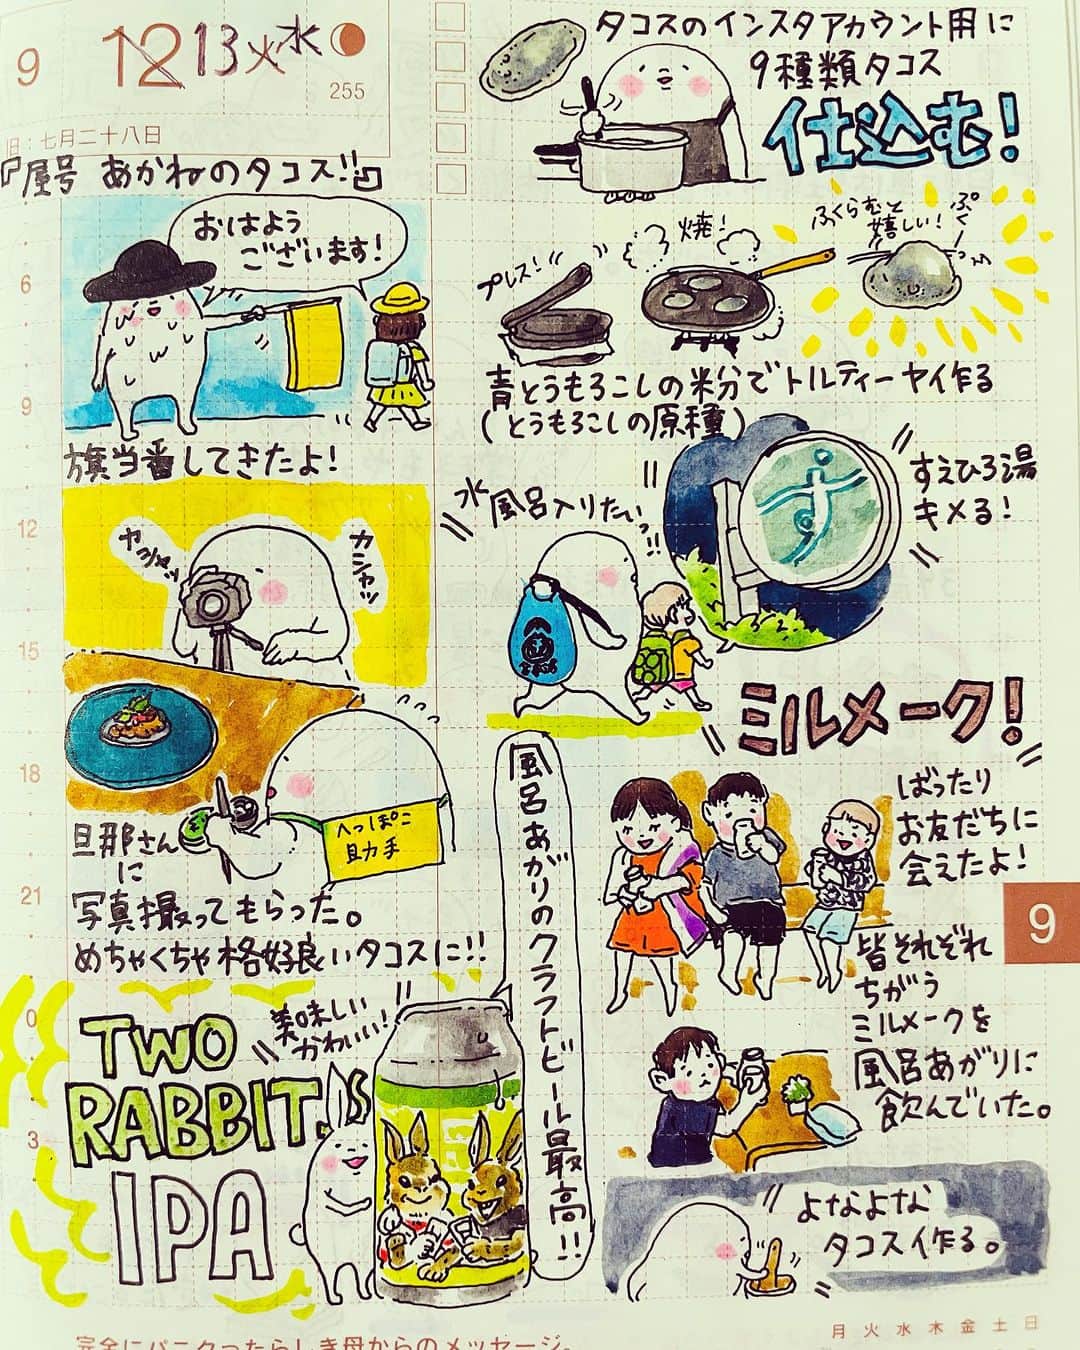 9
12 13 火水
255
旧:七月二十八日
『屋号 あかねのタコス!!』
おはよう
ございます!
旗当番してきたよ!
カシャッ
へっぽこ
助手
旦那さん
に
写真撮ってもらった。
めちゃくちゃ格好良いタコスに!!
美味しい
かわいい!
TWO
RABBITS
IPA
タコスのインスタアカウント用に
9種類タコス
仕込む!
プレス!
焼!
ふくらむと
嬉しい!
青とうもろこしの粉でトルティーヤ作る
(とうもろこしの原種)
水風呂入りたい!!
す
すえひろ湯
キメる!
ミルメーク!
ばったり
お友だちに
会えたよ!
皆それぞれ
ちがう
ミルメークを
風呂あがりに
飲んでいた。
風呂あがりのクラフトビール最高!!
よなよな
タコス作る。
6
9
12
15
18
21
0
3
9
完全にパニクったらしき母からのメッセージ。
月 火 水 木 金 土 日